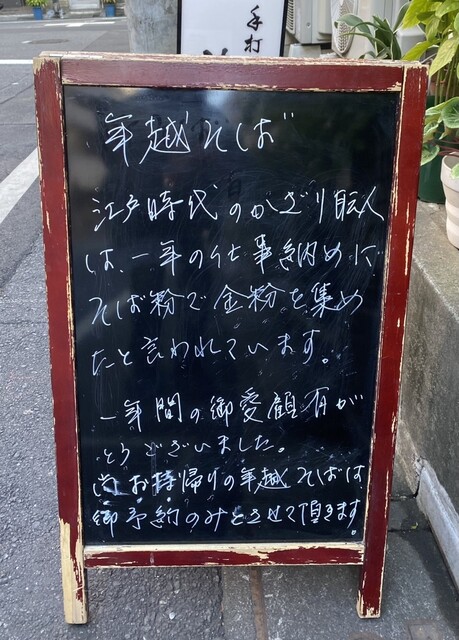 手打
"年越そば"
江戸時代のかざり職人
は、一年の仕事納めに
そば粉で金粉を集め
たと言われています。
一年間の御愛顧有が
とうございました。
尚お持帰りの年越そばは
御予約のみとさせて頂きます